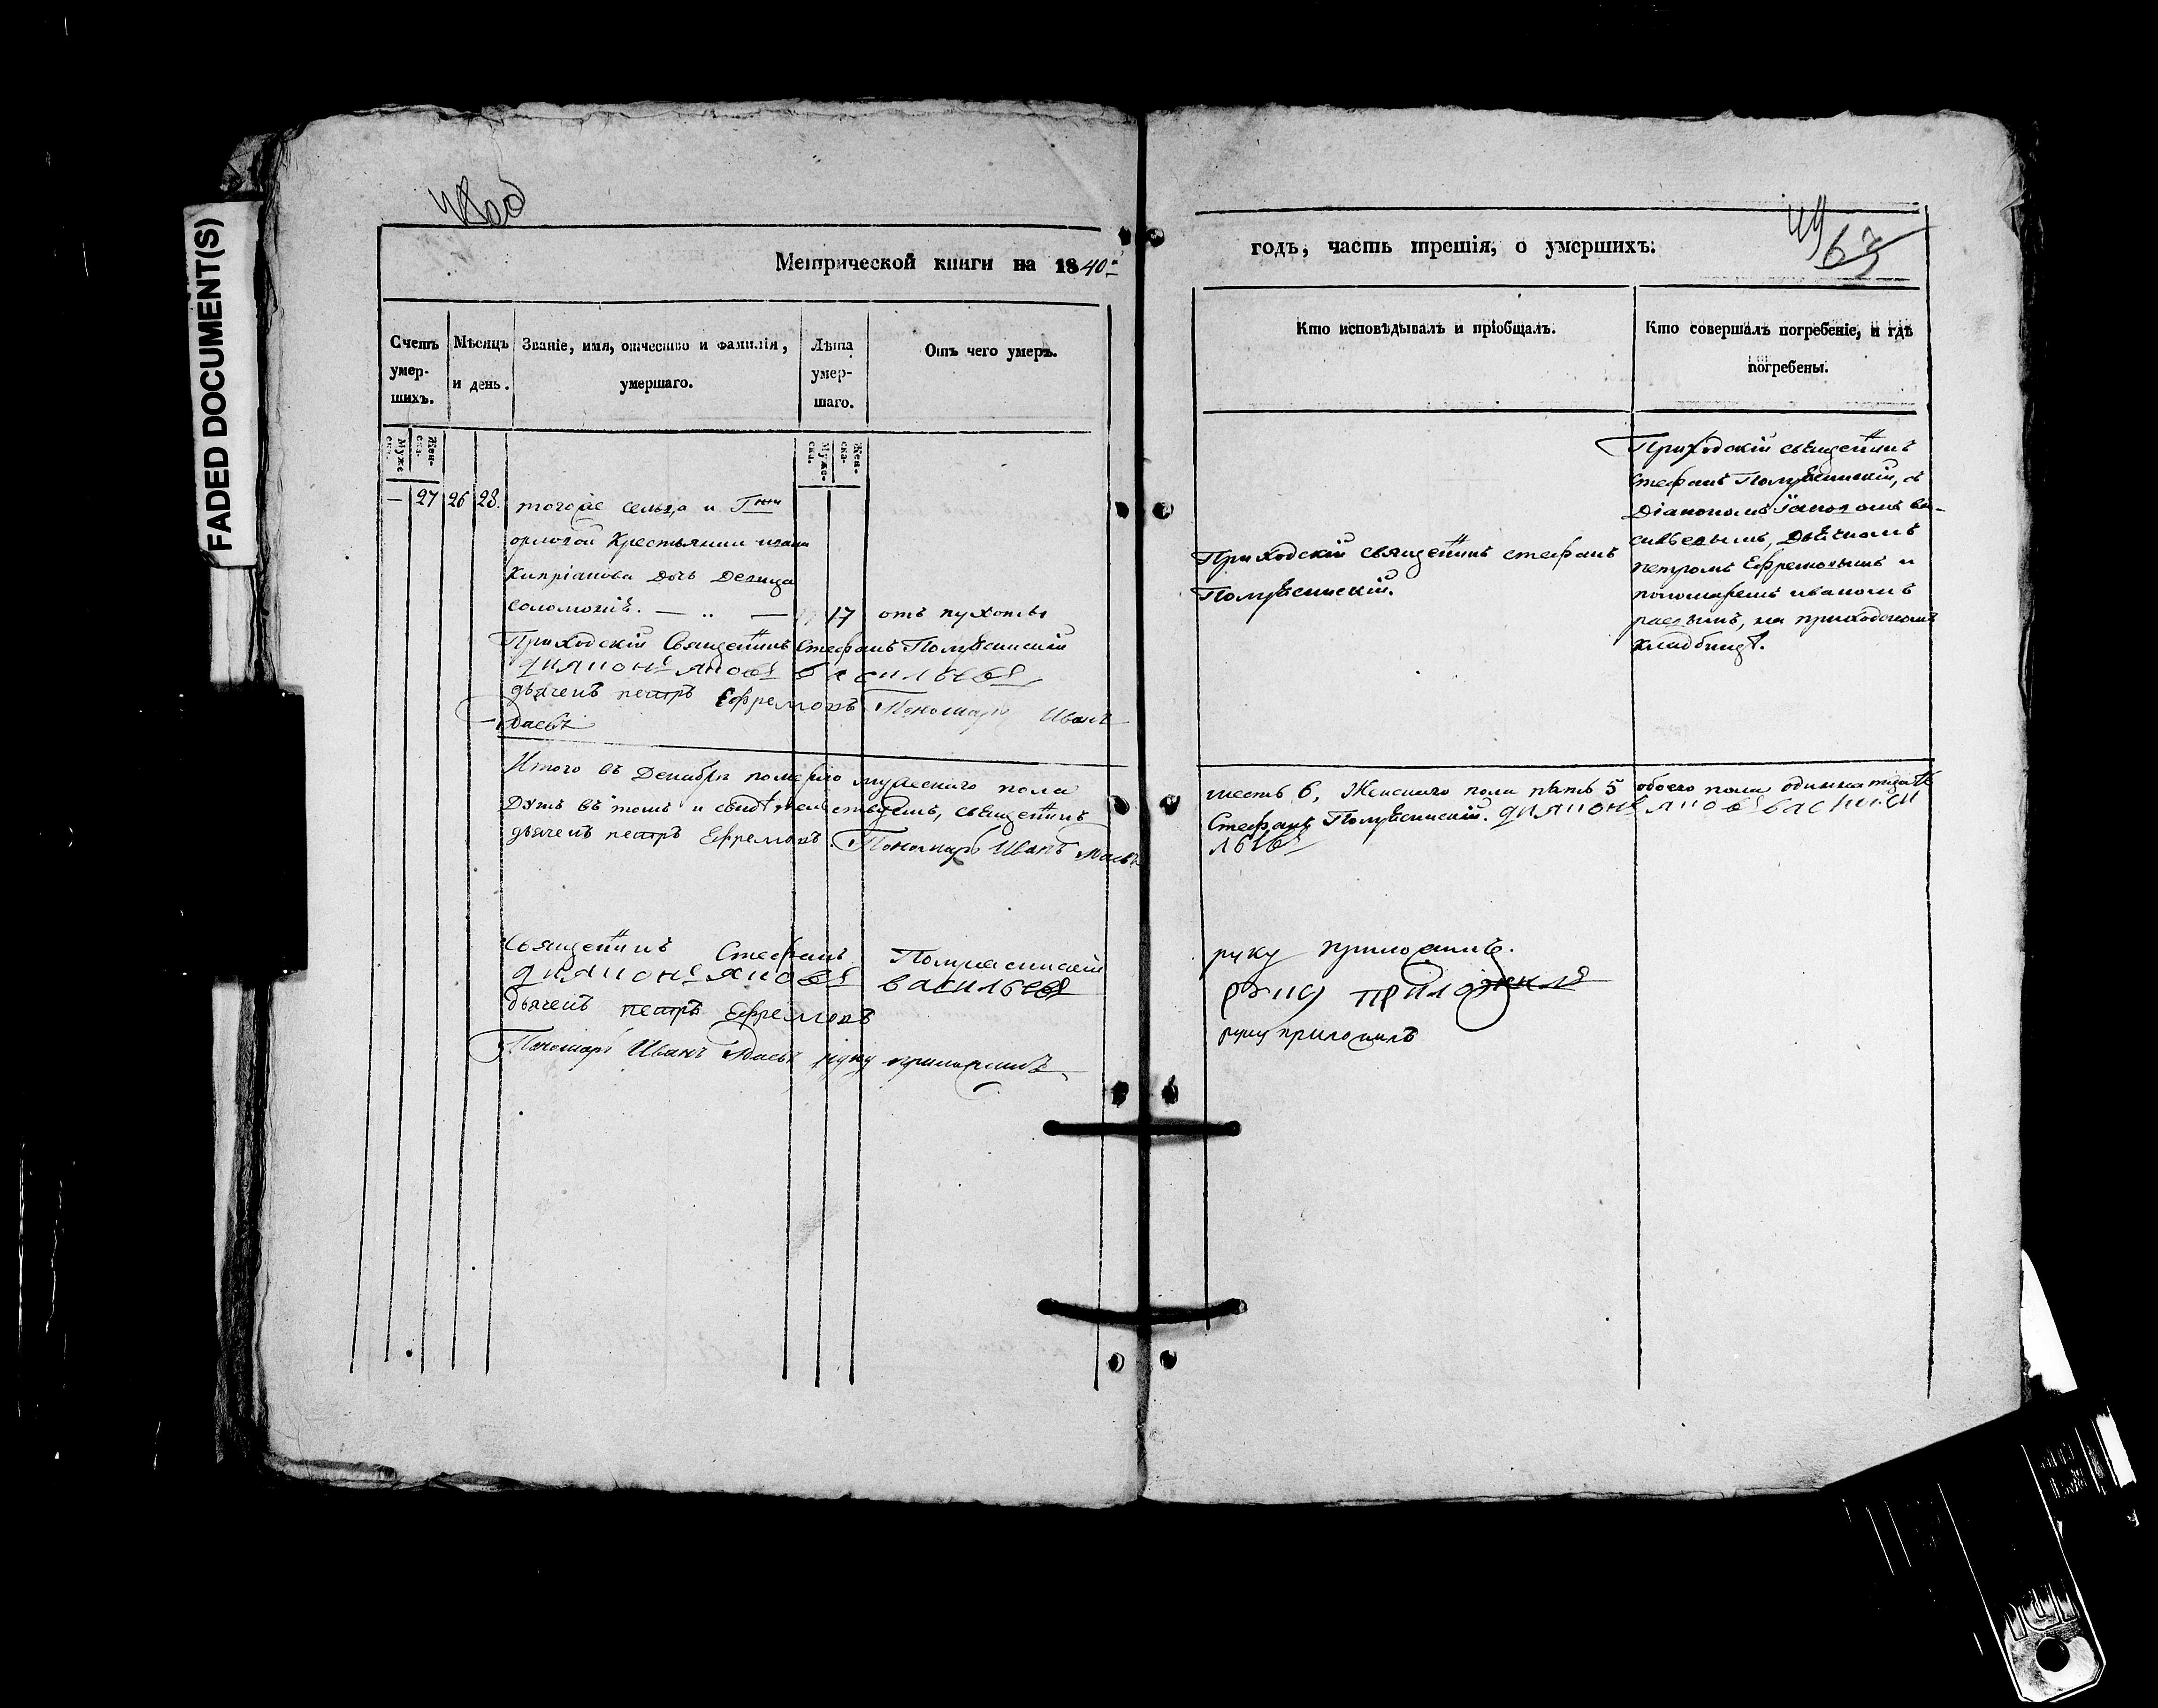 FADED DOCUMENT(S)
Метрической книги на 1840й
годъ, часть третія, о умершихъ:
67
Счетъ умер-шихъ.
Мѣсяцъ и день.
Званіе, имя, отчество и фамилія, умершаго.
Лѣта умер-шаго.
Отъ чего умеръ.
Кто исповѣдывалъ и пріобщалъ.
Кто совершалъ погребеніе, и гдѣ погребены.
Муже ска.
Жен-ска.
Муже-ска.
Жен-ска.
— 27 26 28.
тогожъ сельца и Гжи
орловой Крестьянина ивана
Кипріанова дочь Девица
соломоніѣ. — „ —
17 отъ пухоты
Приходскій священникъ стефанъ
Приходскій священникъ
стефанъ
Діакономъ Іаковомъ ва-
сильевымъ, Дьячкомъ
петромъ Ефремовымъ и
пономаремъ иваномъ
на приходскомъ
кладбищѣ.
Приходскій Священникъ Стефанъ
дияконъ яковъ васильевъ
дьячекъ петръ Ефремовъ Пономарь Иванъ
Итого въ Декабрѣ померло мужескаго пола
шесть 6, Женскаго пола пять 5 обоего пола одинна тцать
Душъ въ томъ и свидѣтельствуемъ, священникъ
Стефанъ дияконъ яковъ васи
львъ
дьячекъ петръ Ефремовъ Пономарь Иванъ
Священникъ Стефанъ
руку приложилъ.
дияконъ яковъ васильевъ
руку приложилъ
дьячекъ петръ Ефремовъ
руку приложилъ
Пономарь Иванъ руку приложилъ